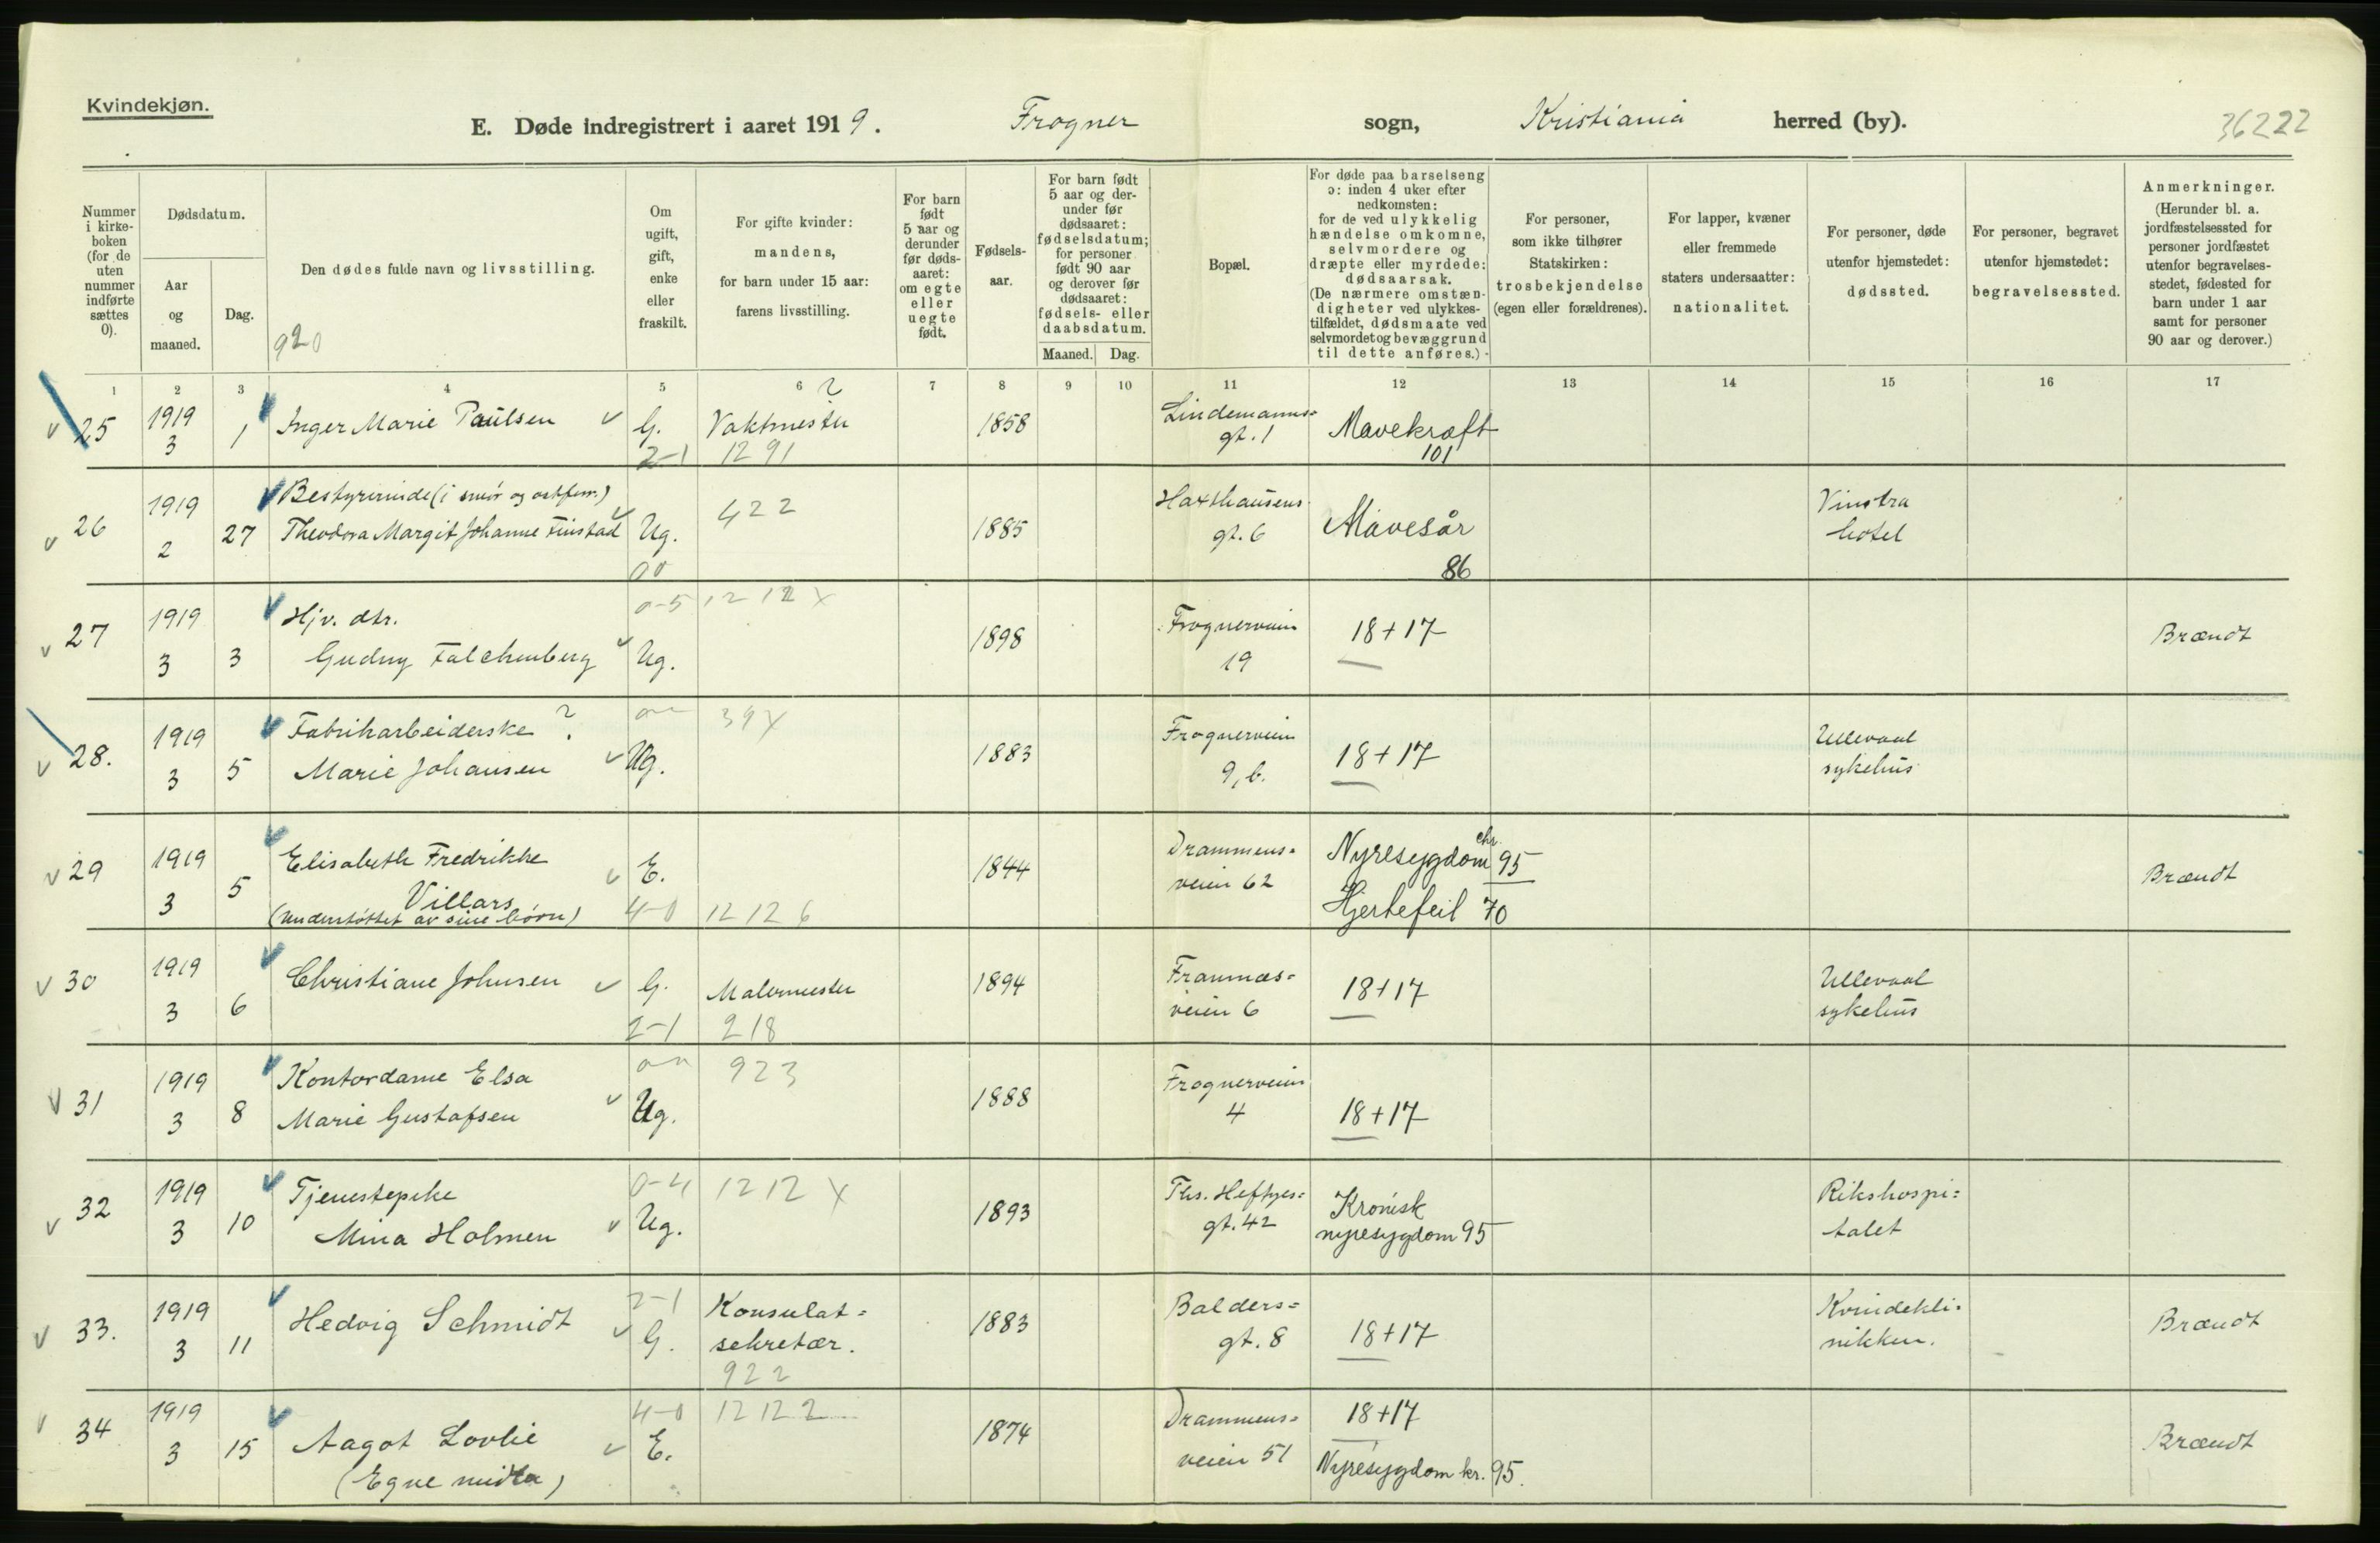 Kvindekjøn.
E. Døde indregistrert i aaret 1919. Frogner sogn, Kristiania herred (by). 36222
Nummer i kirkeboken (for de uten nummer indførte sættes 0).
Dødsdatum.
Aar og maaned.
Dag.
Den dødes fulde navn og livsstilling.
920
Om ugift, gift, enke eller fraskilt.
For gifte kvinder: mandens, for barn under 15 aar: farens livsstilling.
For barn født 5 aar og derunder før dødsaaret: om egte eller uegte født.
Fødselsaar.
For barn født 5 aar og derunder før dødsaaret: fødselsdatum; for personer født 90 aar og derover før dødsaaret: fødsels- eller daabsdatum.
Maaned. Dag.
Bopæl.
For døde paa barselseng ɔ: inden 4 uker efter nedkomsten: for de ved ulykkelig hændelse omkomne, selvmordere og dræpte eller myrdede: dødsaarsak. (De nærmere omstændigheter ved ulykkestilfældet, dødsmaate ved selvmordet og bevæggrund til dette anføres.)
For personer, som ikke tilhører Statskirken: trosbekjendelse (egen eller forældrenes).
For lapper, kvæner eller fremmede staters undersaatter: nationalitet.
For personer, døde utenfor hjemstedet: dødssted.
For personer, begravet utenfor hjemstedet: begravelsessted.
Anmerkninger. (Herunder bl. a. jordfæstelsessted for personer jordfæstet utenfor begravelsesstedet, fødested for barn under 1 aar samt for personer 90 aar og derover.)
1 2 3 4 5 6 7 8 9 10 11 12 13 14 15 16 17
25 1919 3 1 Inger Marie Paulsen G. 2-1 Vaktmester 1291 1858 Lindemanns= gt. 1 Mavekræft 101
26 1919 2 27 Bestyrerinde (i smør og ostforr.) Theodora Margit Johanne Finstad Ug. 00 422 1885 Haxthausens gt. 6 Mavesår 86 Vinstra hotel
27 1919 3 3 Hjv. dtr. Gudny Falchenberg 0-5 Ug. 12 12 X 1898 Frognerveien 19 18+17 Brændt
28. 1919 3 5 Fabrikarbeiderske ? Marie Johansen Ug. 39 X 1883 Frognerveien 9, b. 18+17 Ullevaal sykehus
29 1919 3 5 Elisabeth Fredrikke Villars (understøttet av sine børn) E. 4-0 12 12 6 1844 Drammens= veien 62 Nyresygdom chr. 95 Hjertefeil 70 Brændt
30 1919 3 6 Christiane Johnsen G. 2-1 Malermester 218 1894 Framnæs= veien 6 18+17 Ullevaal sykehus
31 1919 3 8 Kontordame Elsa Marie Gustafsen Ug. 923 1888 Frognerveien 4 18+17
32 1919 3 10 Tjenestepike Mina Holmen 0-4 Ug. 12 12 X 1893 Ths. Heftyes= gt. 42 Kronisk nyresygdom 95 Rikshospi= talet
33. 1919 3 11 Hedvig Schmidt 2-1 G. Konsulat= sekretær. 922 1883 Balders= gt. 8 18+17 Kvindekli= nikken. Brændt
34 1919 3 15 Aagot Lovlie (Egne midler) 4-0 E. 12 12 2 1874 Drammens= veien 51 18+17 Nyresygdom kr. 95. Brændt